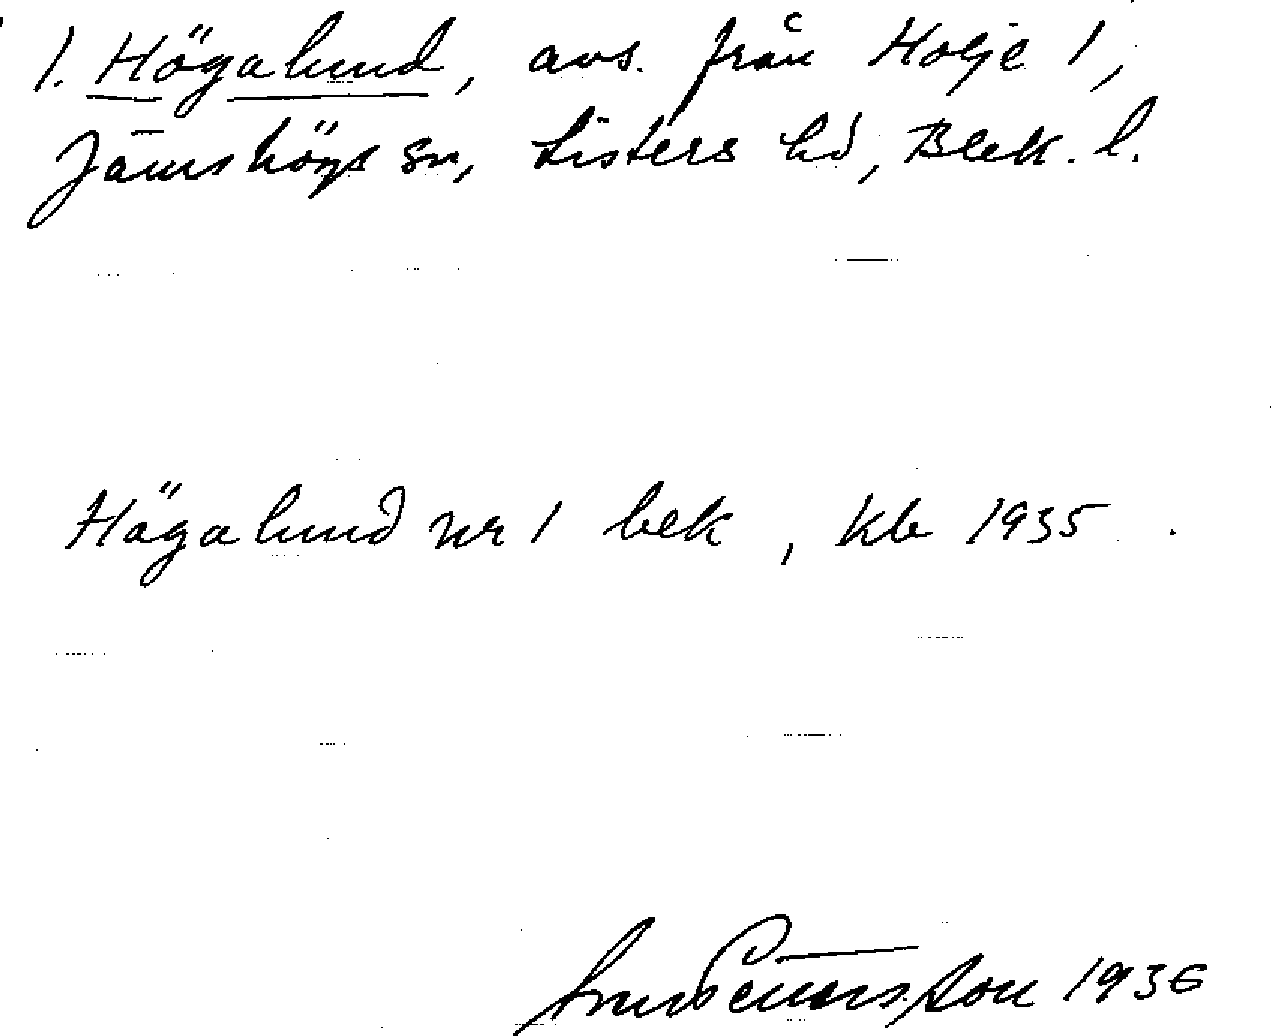 1. Högalund, avs. från Holje 1,
Jämshögs sn, Listers hd, Blek. l.
Högalund nr 1 bek, kb 1935.
Pettersson 1936